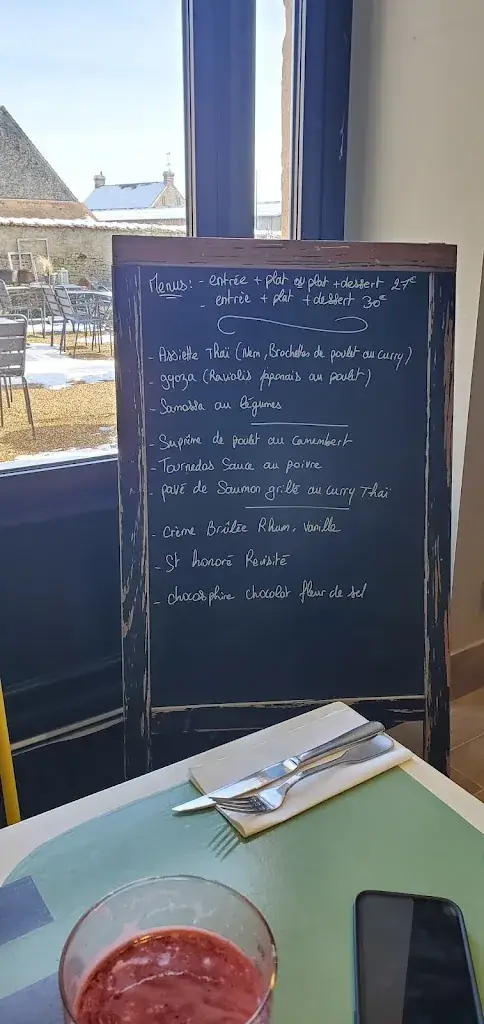 Menus: - entrée + plat ou plat + dessert 27€
- entrée + plat + dessert 30€
- Assiette Thaï (Nem, Brochettes de poulet au curry)
- gyoza (Raviolis japonais au poulet)
- Samossa au légumes
- Suprême de poulet au Camembert
- Tournedos Sauce au poivre
- pavé de Saumon grillé au curry Thaï
- Crème Brûlée Rhum, Vanille
- St honoré Revisité
- chocosphire chocolat fleur de sel